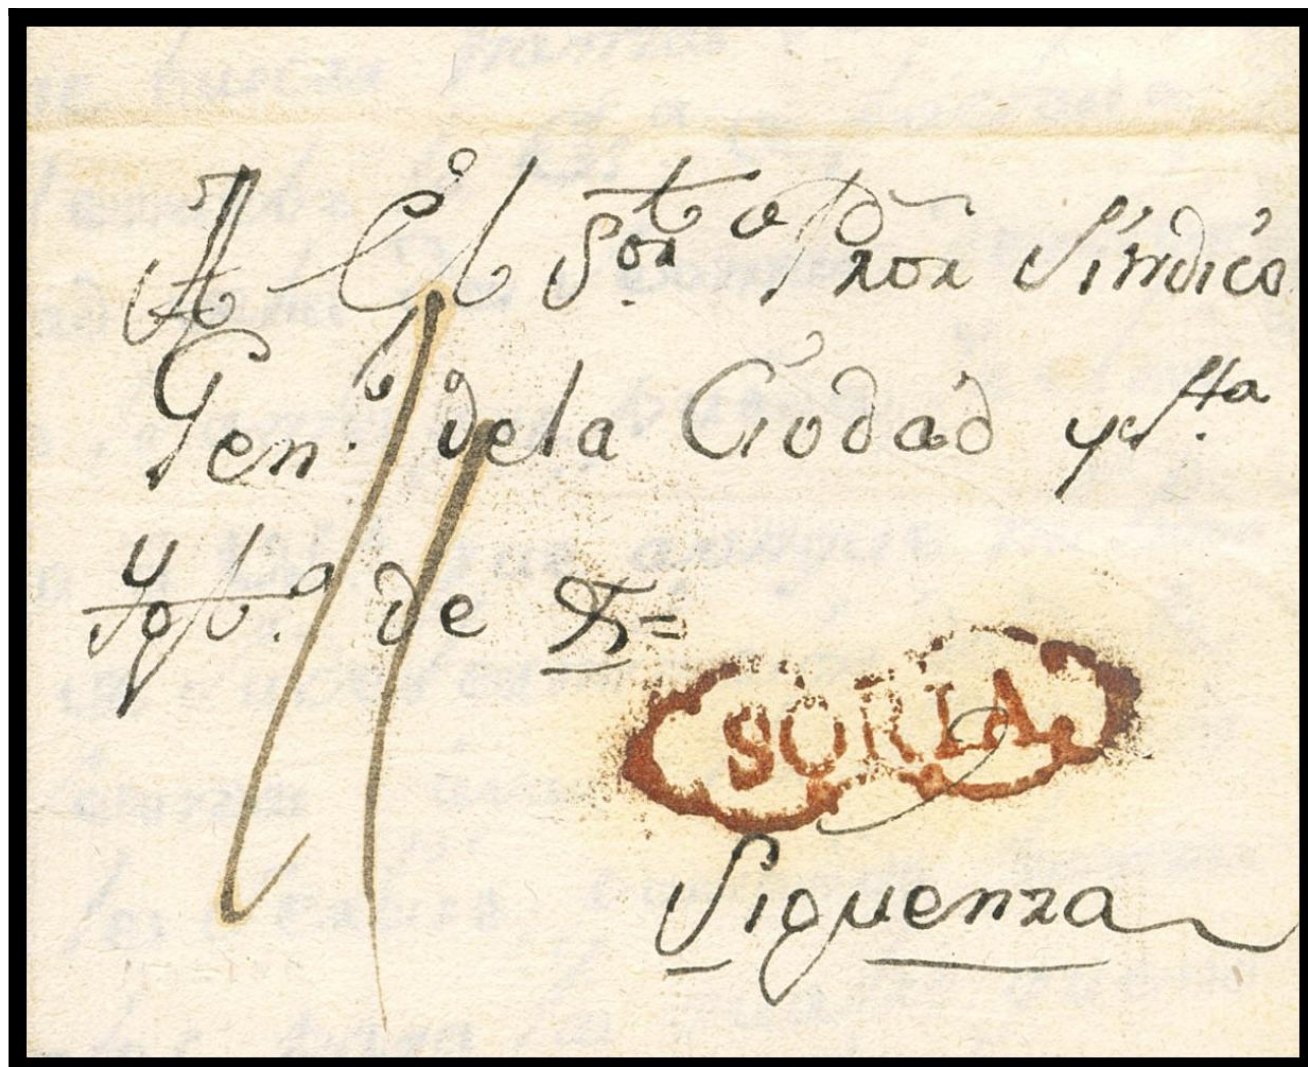 A El Sor Pror Síndico
Gen.l dela Ciudad y
de
SORIA
Siguenza